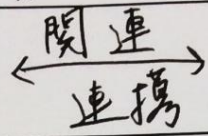 関連
連携